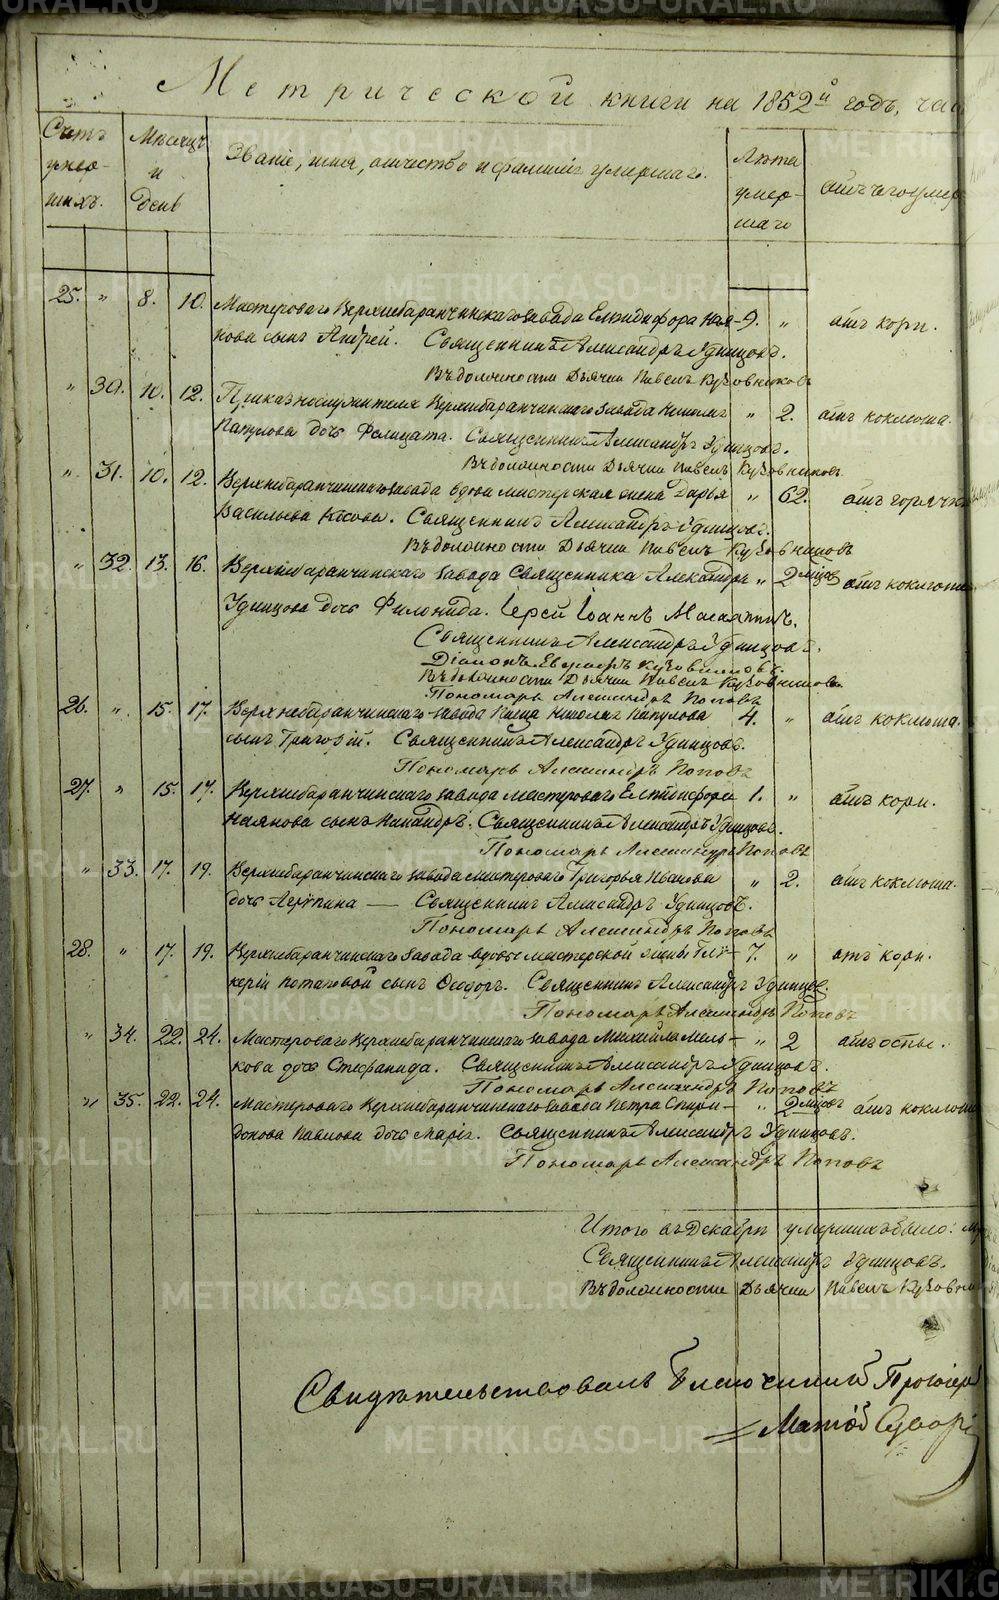 Метрической книги на 1852й годъ, час
Счетъ умер-шихъ.
Мѣсяцъ и день
Званіе, имя, отчество и фамилія умершаго.
Лѣта умер-шаго
отъ чего умер
25. " 8. 10. Мастероваго Верхнебаранчинскаго завода Елпидифора Ная- 9. " отъ кори.
нова сынъ Андрей. Священникъ Александръ Удинцовъ.
Въ должности Дьячка Павелъ Кузовниковъ
" 30. 10. 12. Приказнослужителя Верхнебаранчинскаго завода Николая " 2. отъ коклюша.
Пагулова дочь Фелицата. Священникъ Александръ Удинцовъ.
Въ должности Дьячка Павелъ Кузовниковъ
" 31. 10. 12. Верхнебаранчинскаго завода вдова мастерская жена Дарья " 62. отъ горячк
Васильева Священникъ Александръ Удинцовъ.
Въ должности Дьячка Павелъ Кузовниковъ
" 32. 13. 16. Верхнебаранчинскаго завода Священника Александра " 2 мѣсяц отъ коклюша
Удинцова дочь Филонида. Іерей Іоаннъ
Священникъ Александръ Удинцовъ.
Діаконъ Кузовниковъ.
Въ должности Дьячка Павелъ Кузовниковъ
Пономарь Александръ Поповъ
26. " 15. 17. Верхнебаранчинскаго завода Николая Пагулова 4. " отъ коклюша.
сынъ Григорій. Священникъ Александръ Удинцовъ.
Пономарь Александръ Поповъ
27. " 15. 17. Верхнебаранчинскаго завода мастероваго Елпидифора 1. " отъ кори.
Наянова сынъ Никандръ. Священникъ Александръ Удинцовъ.
Пономарь Александръ Поповъ
" 33. 17. 19. Верхнебаранчинскаго завода мастероваго Григорья Иванова " 2. отъ коклюша.
дочь Агрипина — Священникъ Александръ Удинцовъ.
Пономарь Александръ Поповъ
28. " 17. 19. Верхнебаранчинскаго завода вдовы мастерской жены Гли- 7. " отъ кори.
керіи Потаповой сынъ Ѳеодоръ. Священникъ Александръ Удинцов.
Пономарь Александръ Поповъ
" 34. 22. 24. Мастероваго Верхнебаранчинскаго завода Михайла Мель- " 2 отъ оспы.
кова дочь Стефанида. Священникъ Александръ Удинцовъ.
Пономарь Александръ Поповъ
" 35. 22. 24. Мастероваго Верхнебаранчинскаго завода Петра Спири- " 2 мѣсяц отъ коклюш
донова Павлова дочь Марія. Священникъ Александръ Удинцовъ.
Пономарь Александръ Поповъ
Итого въ Декабрѣ умершихъ было:
Священникъ Александръ Удинцовъ.
Въ должности Дьячка Павелъ Кузовни
Свидѣтельствовалъ Благочинный Протоіерей
METRIKI.GASO-URAL.RU